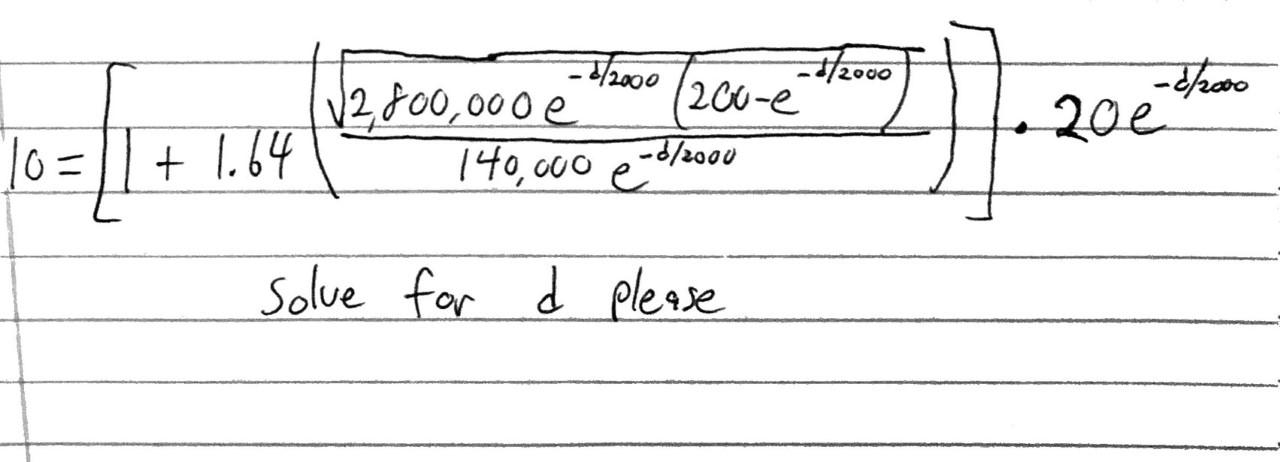 10 = [1 + 1.64 (√(2,800,000 e^(-d/2000) (200-e^(-d/2000))) / 140,000 e^(-d/2000))] · 20e^(-d/2000)
Solve for d please